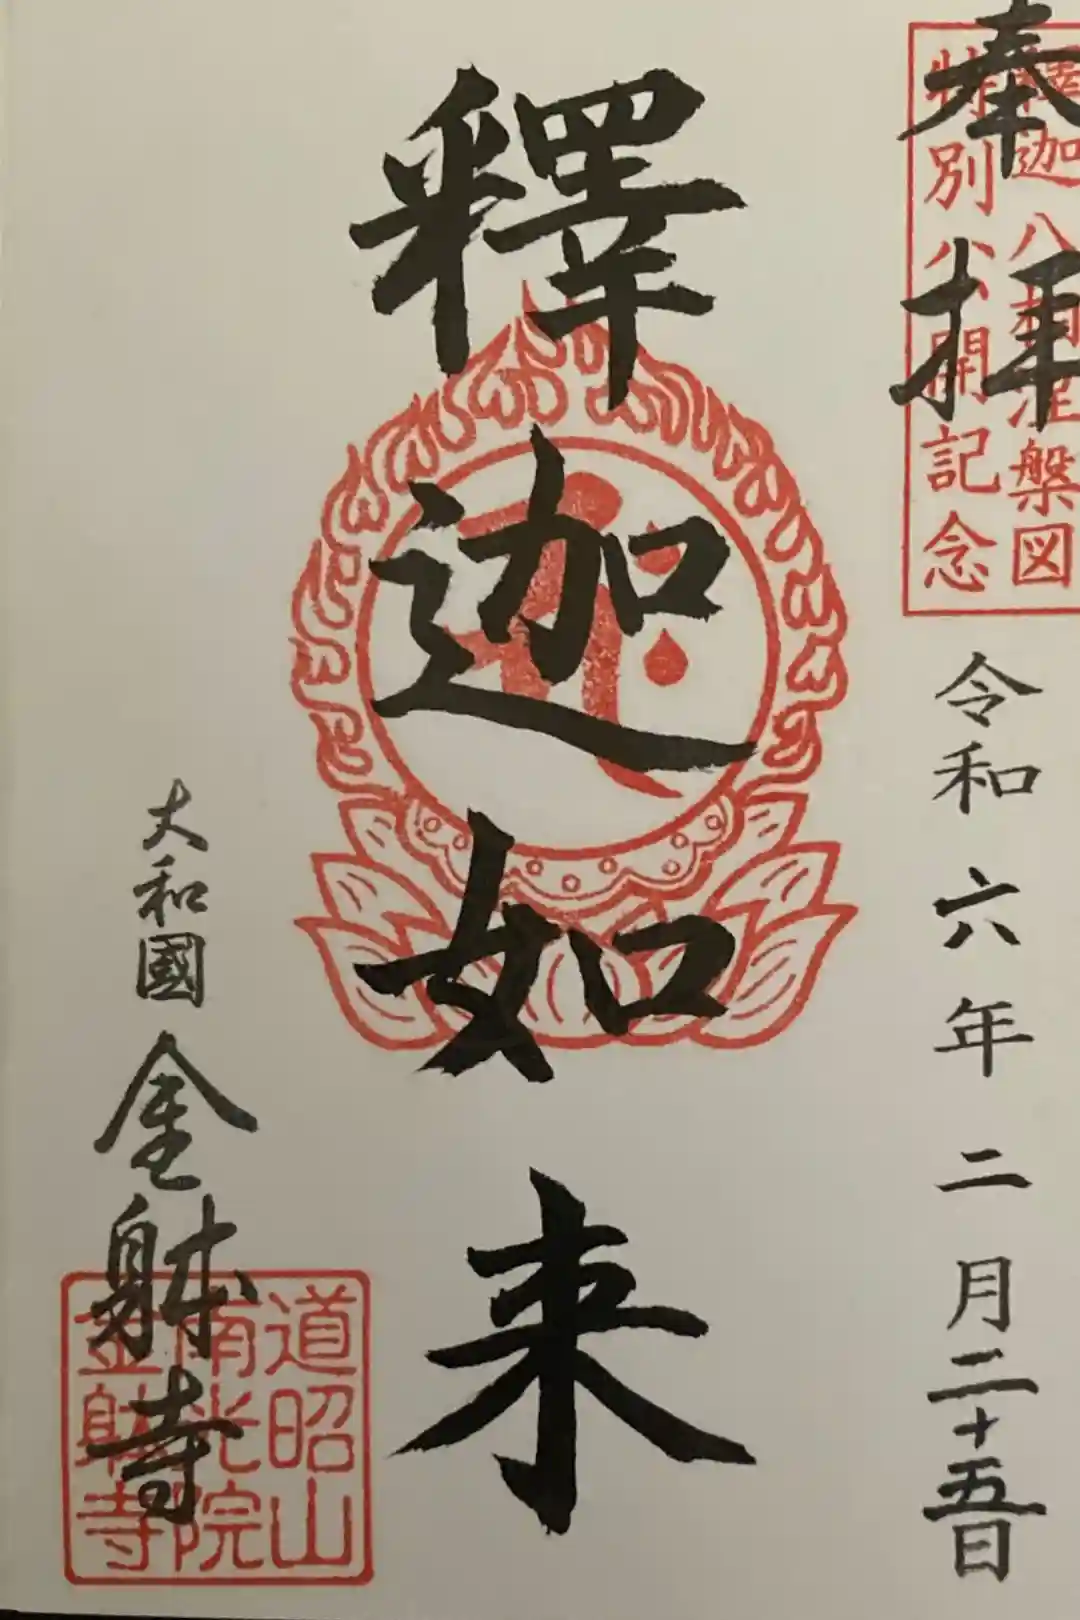 奉拝
釋迦八相涅槃図
特別公開記念
令和六年二月二十五日
釋迦如来
大和國 金躰寺
道昭山
南光院
金躰寺